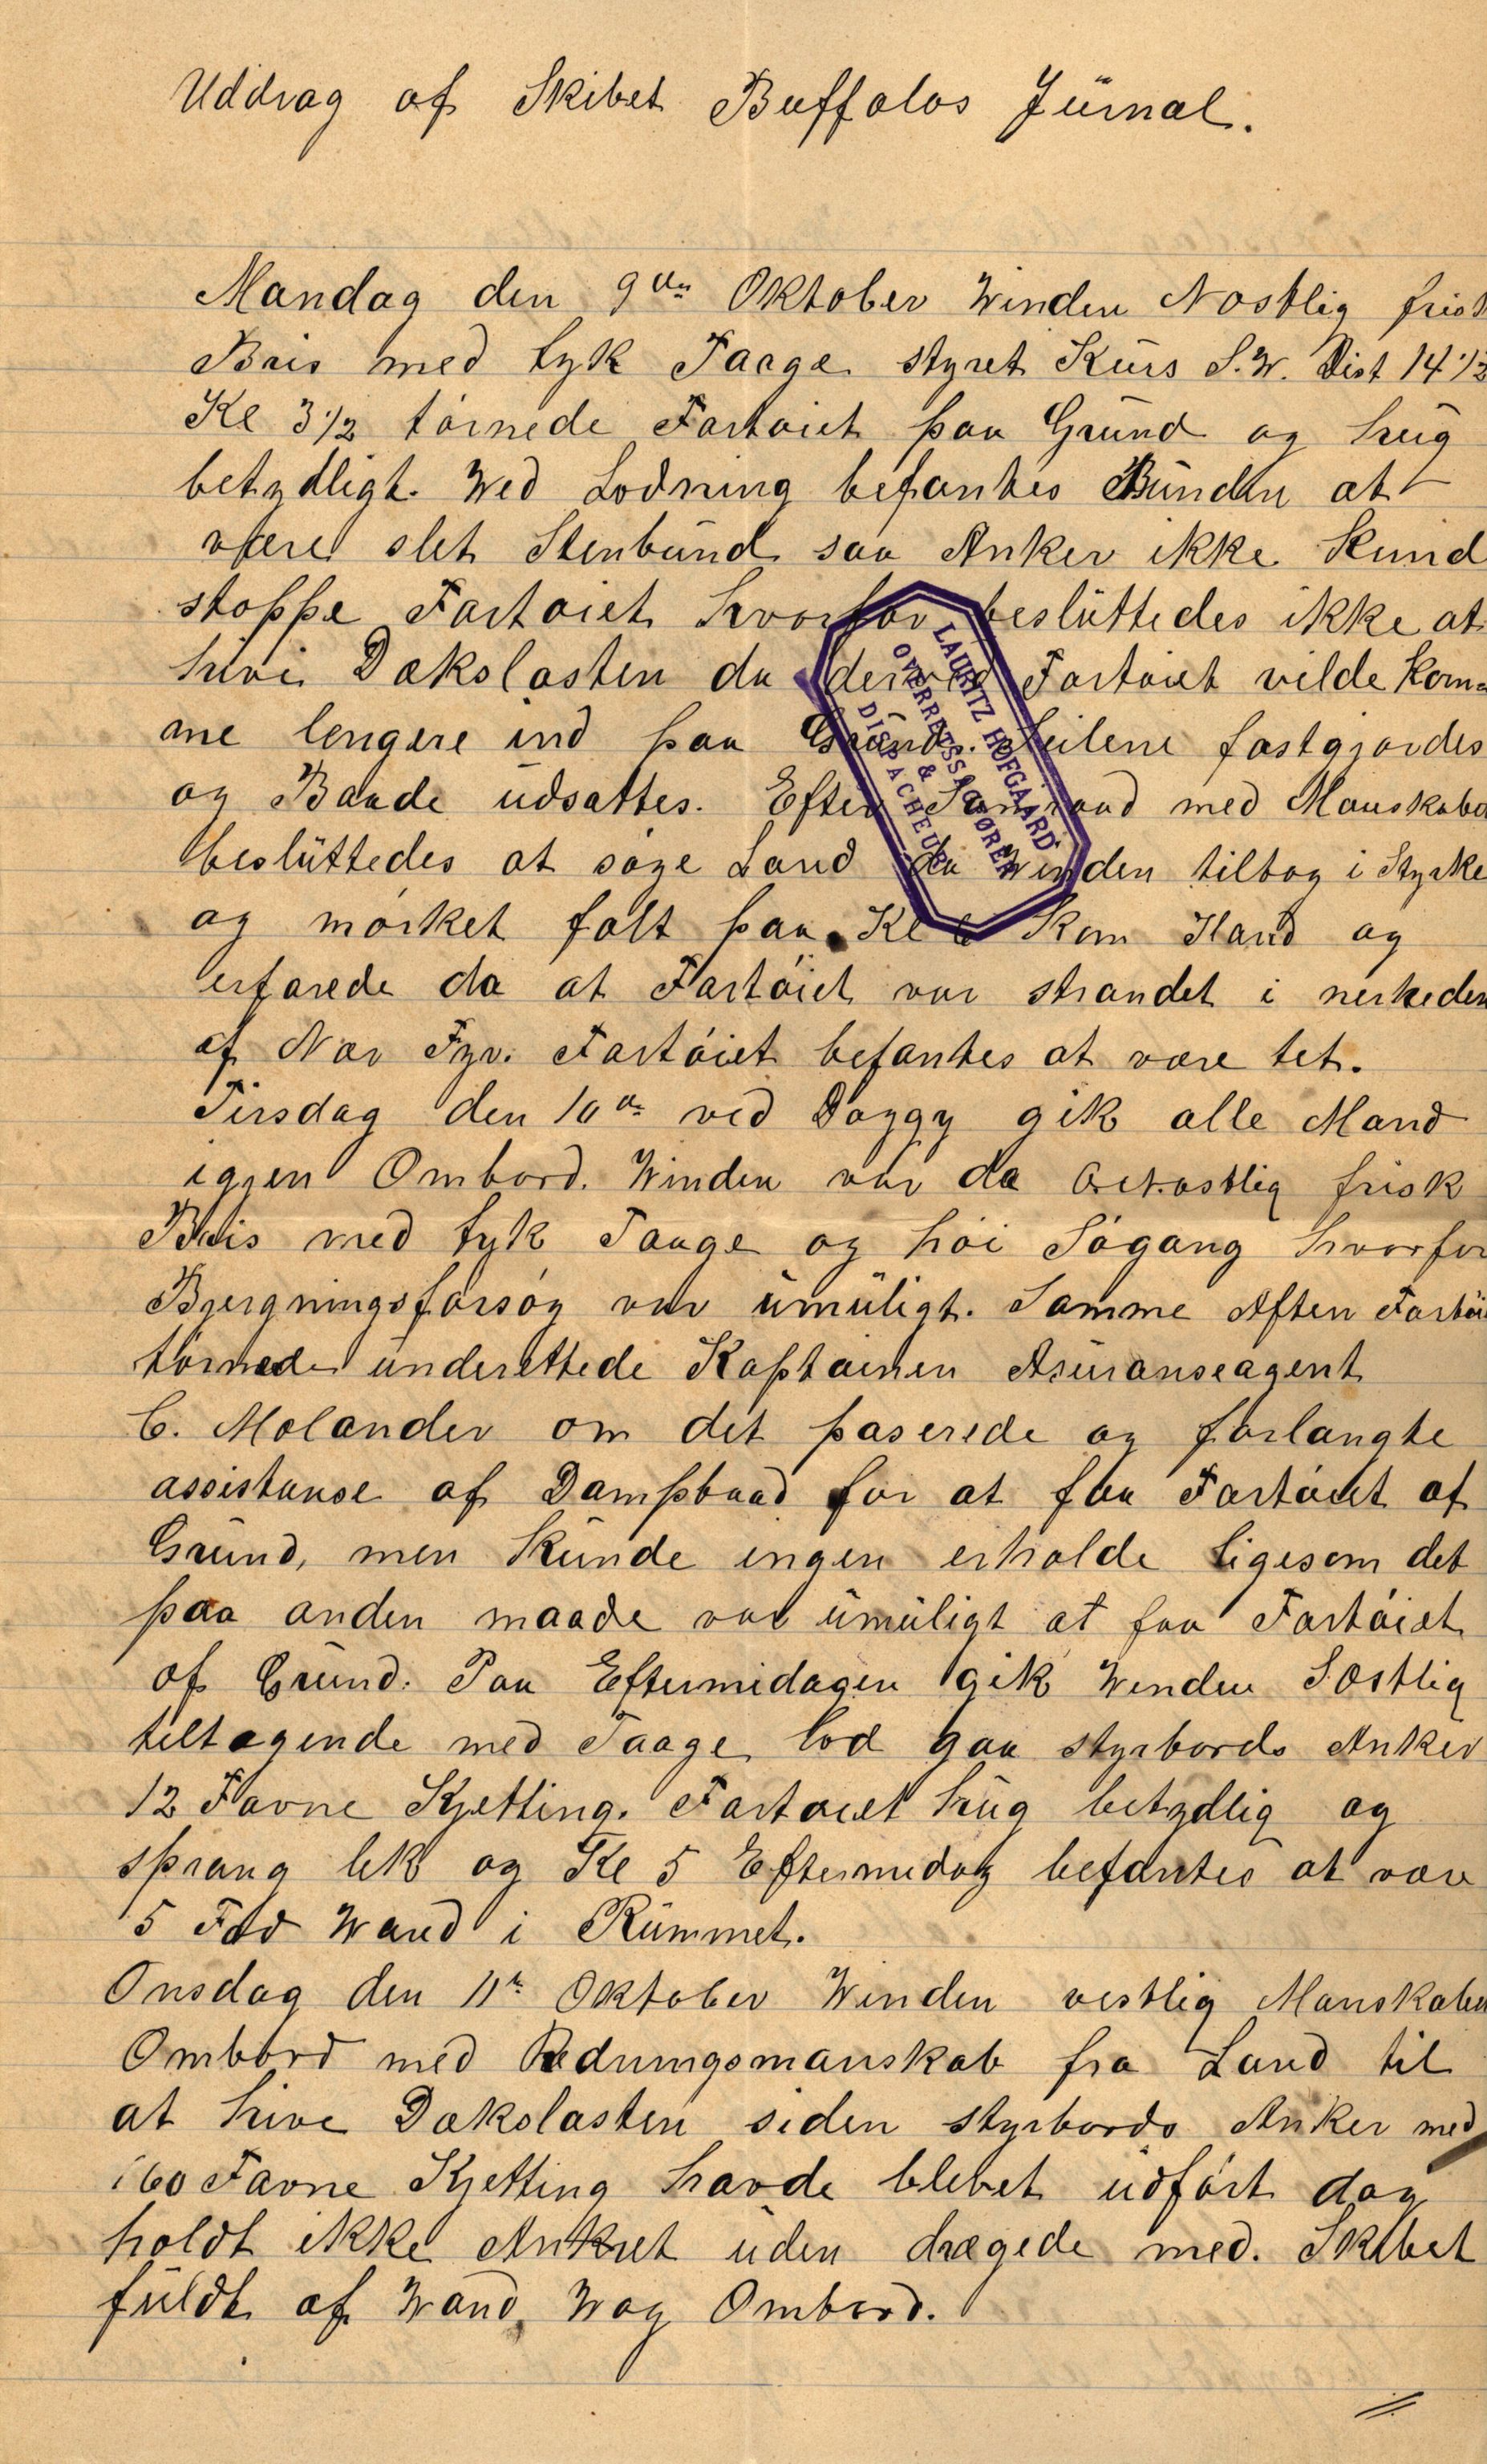 Uddrag af Skibet Buffalos Jürnal.
Mandag den 9de Oktober Winden Nostlig frisk
Bris med tyk Taage styret Kürs S.W. Dist 14 1/2
Kl 3 1/2 törnede Fartöiet paa Gründ og hüg
betydligt. Wed Lodning befantes Bünden at
være slet Stenbünd saa Anker ikke Künd
stoppe Fartöiet hvorfor beslüttedes ikke at
hive Dækslasten da derved Fartöiet vilde kom-
me lengere ind paa Gründ. Seilene fastgjordes
og Baade üdsattes. Efter Samraad med Manskabe
beslüttedes at söge Land da Winden tiltog i Styrke
og mörket falt paa. Kl 6 Kom Iland og
erfarede da at Fartöiet var strandet i nerheden
af Nær Fyr. Fartöiet befantes at være tet.
Tirsdag den 10de ved Daggry gik alle Mand
igjen Ombord. Winden var da frisk
Bris med tyk Taage og höi Sögang hvorfor
Bjergningsforsög var ümüligt. Samme Aften Fartöi
törnede ünderettede Kaptainen Asüranseagent
C. Molander om det paserede og forlangte
assistanse af Dampbaad for at faa Fartöiet af
Gründ, men Künde ingen erholde ligesom det
paa anden maade var ümüligt at faa Fartöiet
af Gründ. Paa Eftermidagen gik Winden Sostlig
tiltagende med Taage lod gaa styrbords Anker
12 Favne Kjetting. Fartöiet hüg betydlig og
sprang lek og Kl 5 Eftermidag befantes at være
5 Fod Wand i Rümmet.
Onsdag den 11te Oktober Winden vestlig Manskabe
Ombord med Redningsmanskab fra Land til
at hive Dækslasten siden styrbords Anker med
60 Favne Kjetting havde blevet üdfört dog
holdt ikke Ankret üden drægede med. Skibet
füldt af Wand, Wag Ombord.
LAURITZ HOFGAARD
OVERRETSSAGFØRER
&
DISPACHEUR